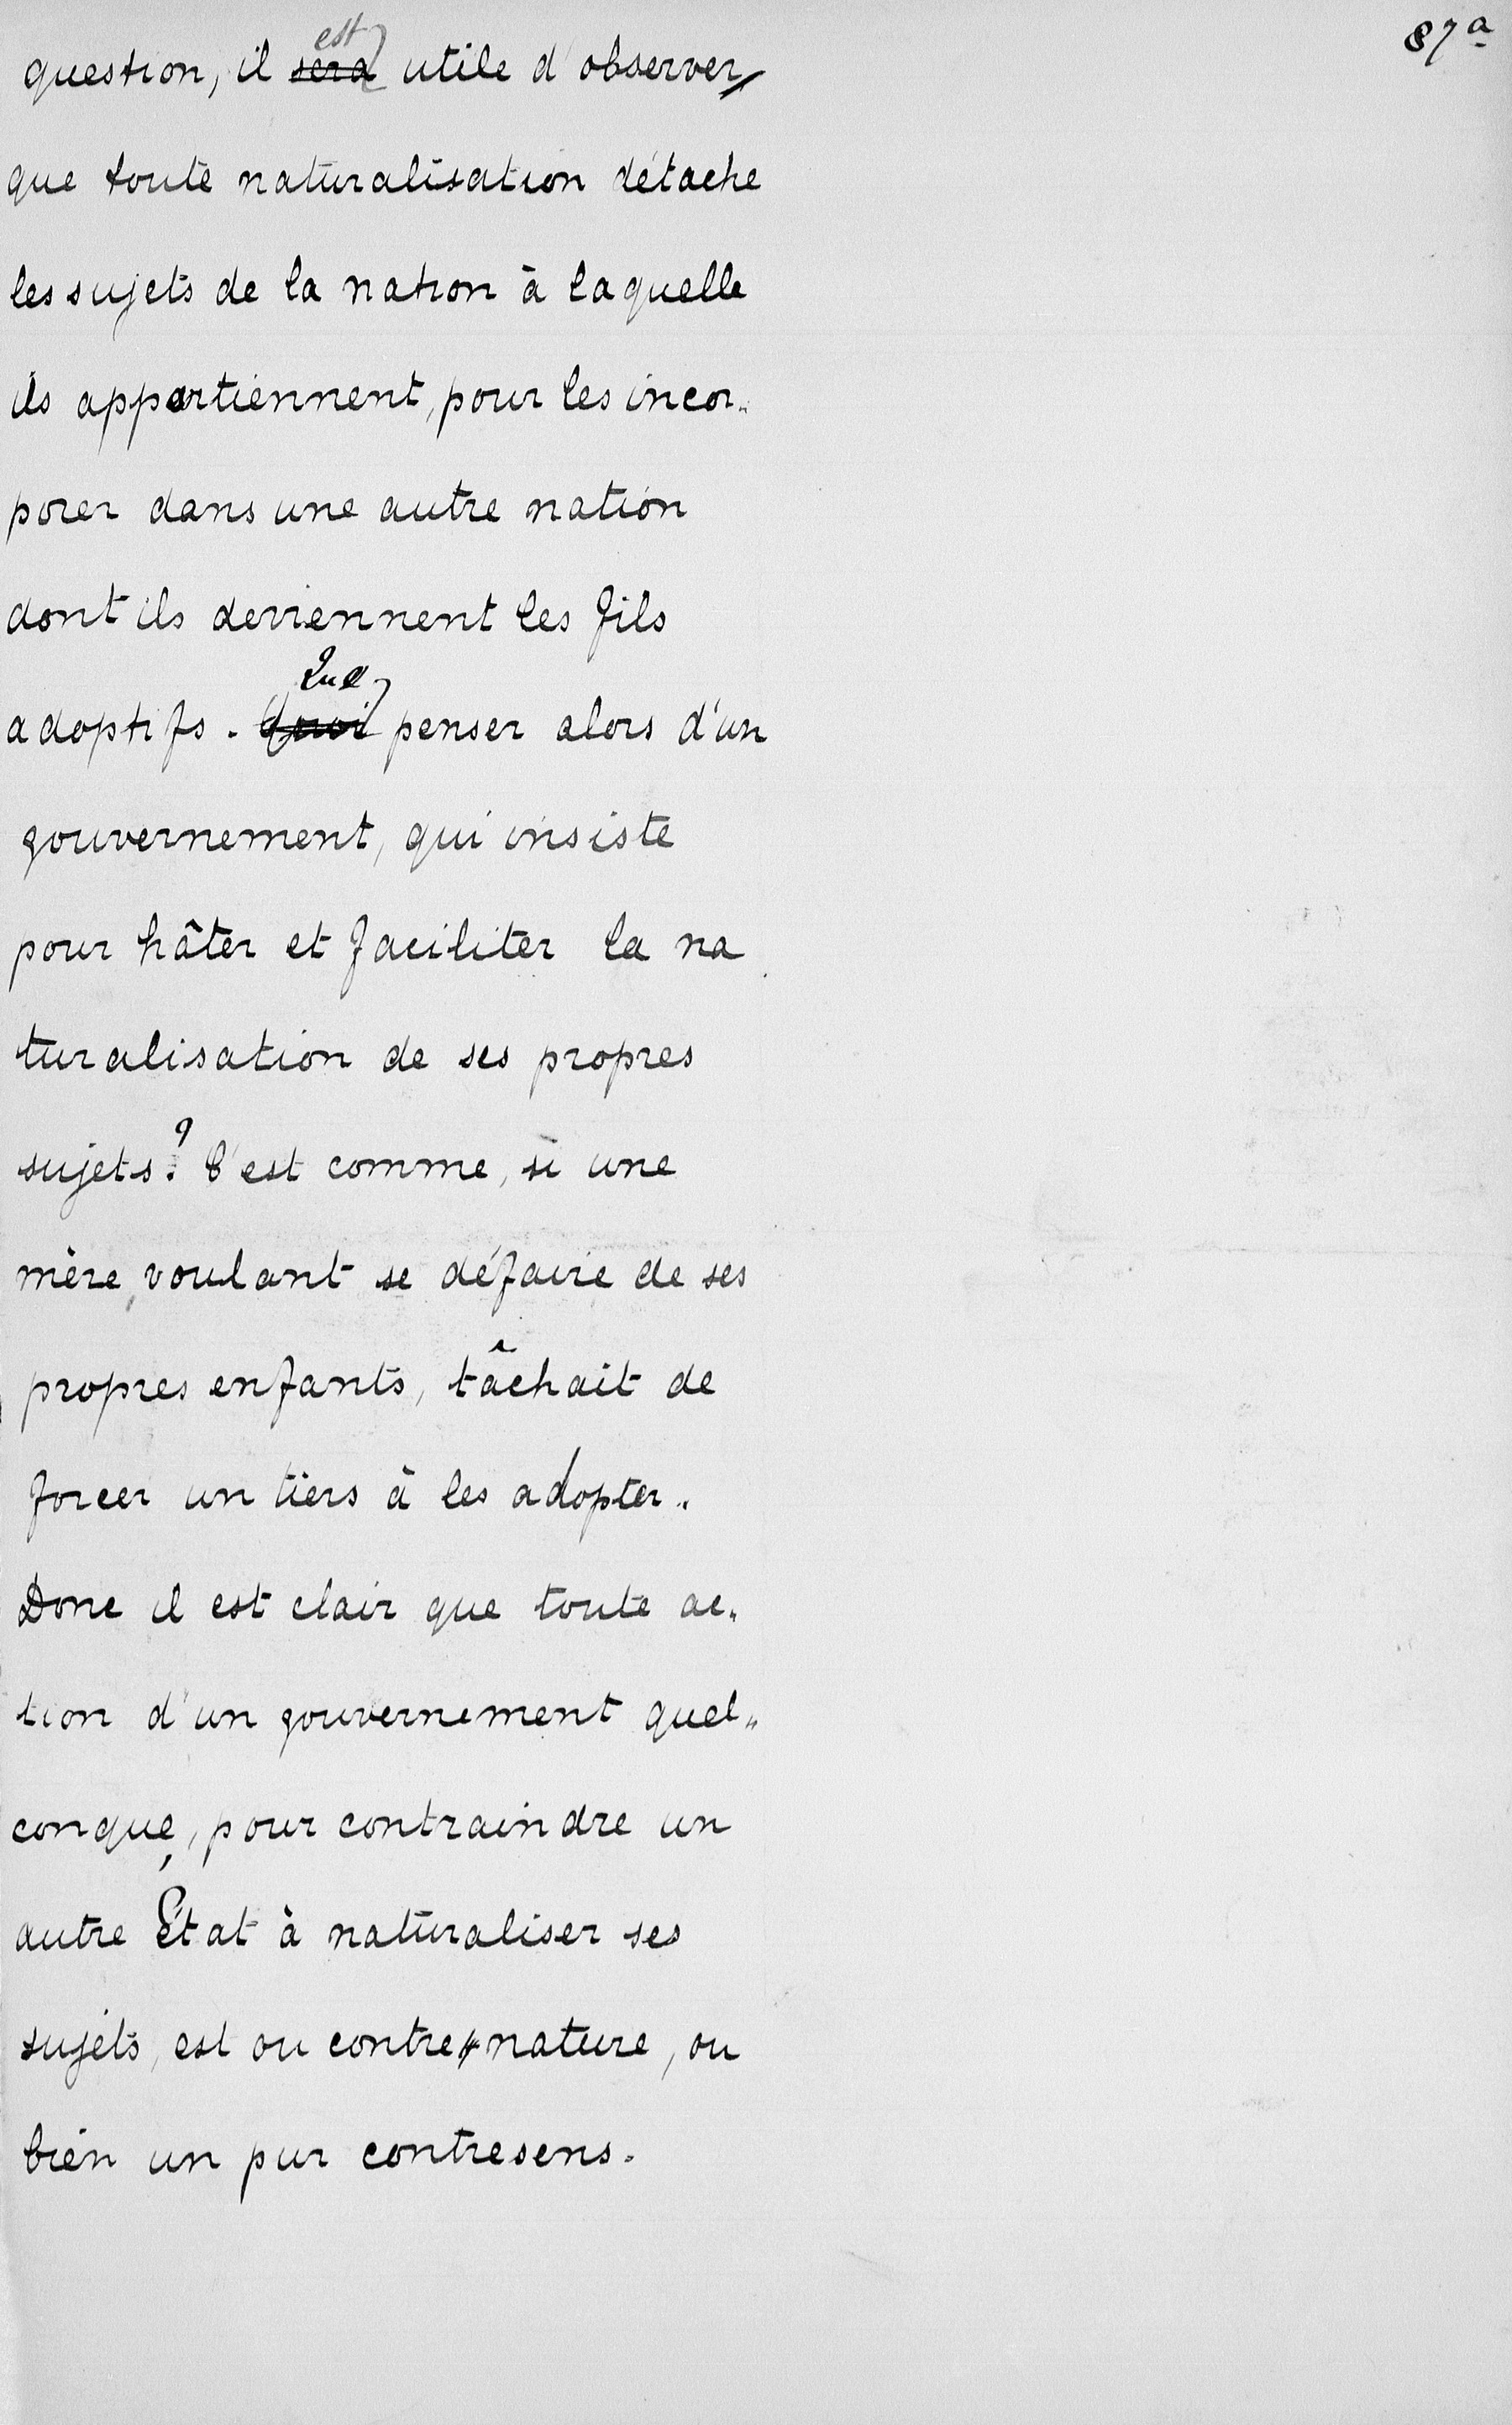 87a
question, il sera est utile d'observer
que toute naturalisation détache
les sujets de la nation à laquelle
ils appartiennent, pour les incor-
porer dans une autre nation
dont ils deviennent les fils
adoptifs. Quoi Que penser alors d'un
gouvernement, qui insiste
pour hâter et faciliter la na
turalisation de ses propres
sujets? C'est comme, si une
mère, voulant se défaire de ses
propres enfants, tâchait de
forcer un tiers à les adopter.
Donc il est clair que toute ac-
tion d'un gouvernement quel-
conque, pour contraindre un
autre État à naturaliser ses
sujets, est ou contre nature, ou
bien un pur contresens.